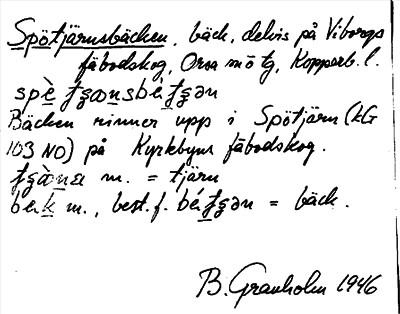 Spötjärnsbäcken, bäck, delvis på Viborgs
fäbodskog, Orsa, Kopparb. l.
Bäcken rinner upp i Spötjärn (kG
103 NO) på Kyrkbyns fäbodskog.
m. = tjärn
m., best. f. = bäck.
B. Granholm 1946